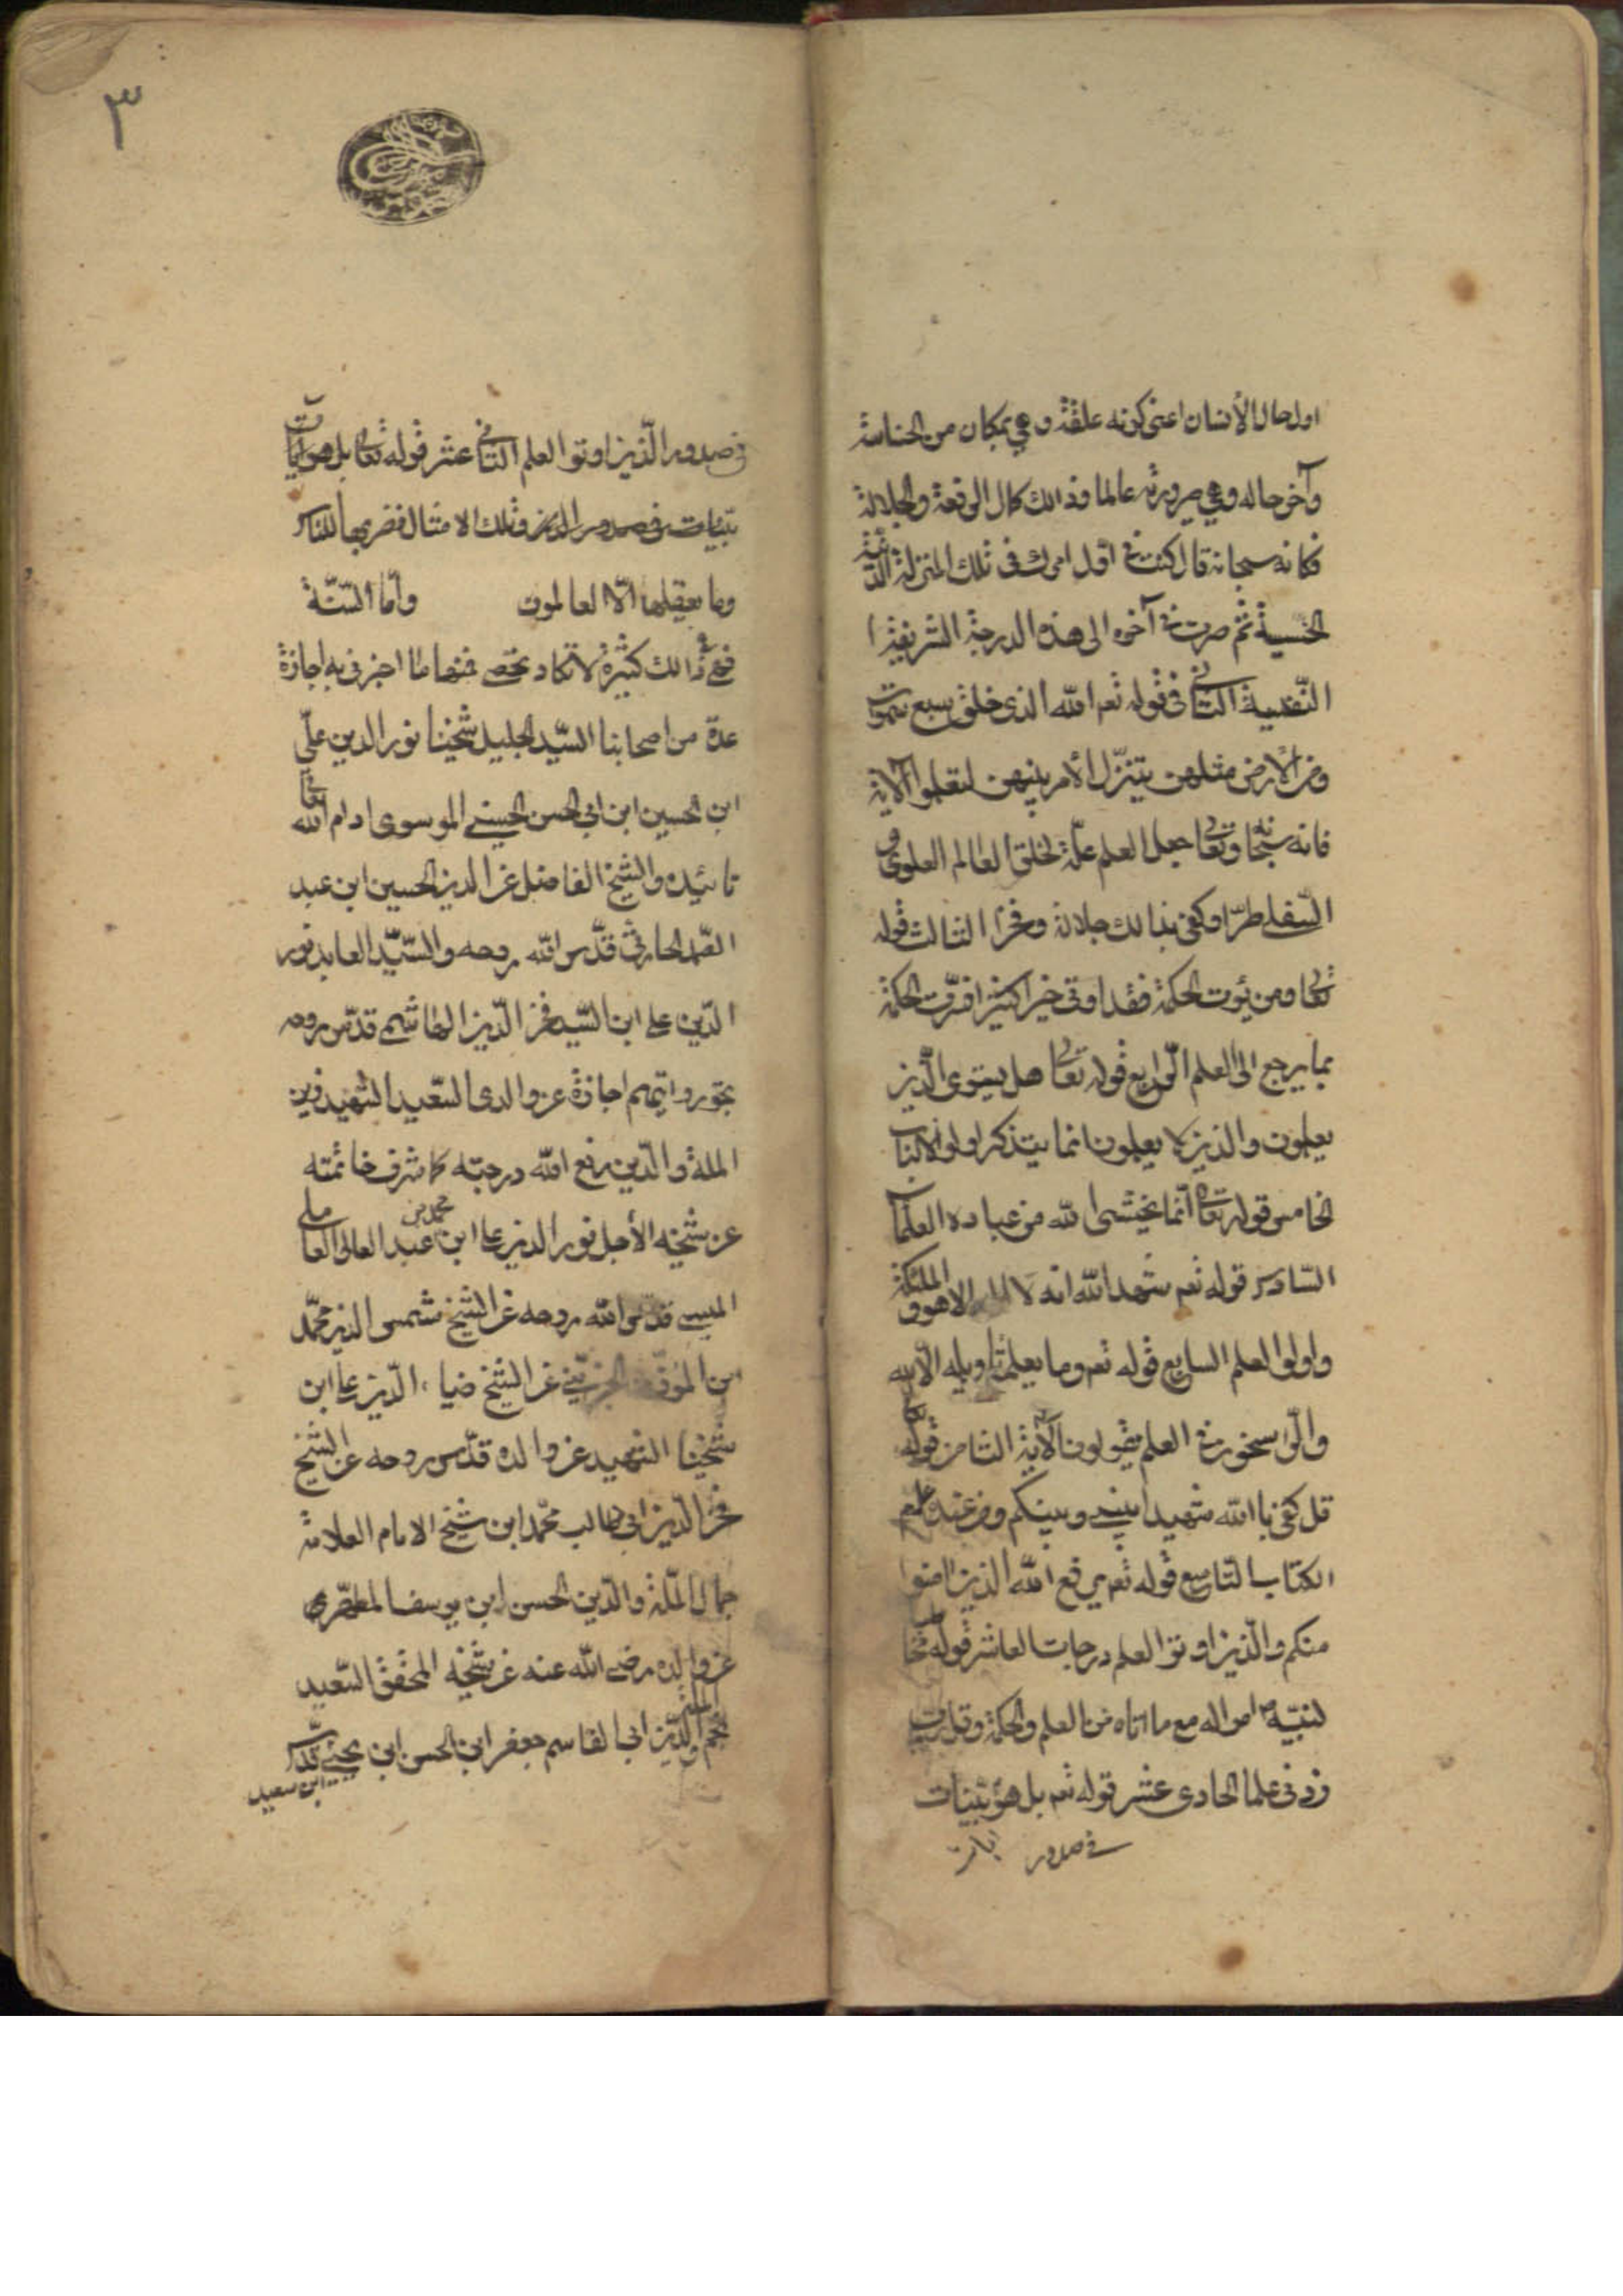 اول حال الأنسان اعنى كونه علقة وهي بمكان من الخساسة
وآخر حاله وهي صيرورته عالما وذالك كمال الرفعة والجلالة
فكانه سبحانه قال كنت في اول امرك في تلك المنزلة الدنيّة
الخسيسة ثم صرت في آخره الى هذه الدرجة الشريفة
النّفيسة الثانى فى قوله تعم الله الذى خلق سبع سموات
ومن الأرض مثلهن يتنزّل الأمر بينهن لتعلموا الآية
فانه سبحانه وتعالى جعل العلم علّة لخلق العالم العلوى و
السّفلى طرّا وكفى بذالك جلالة وفخرا الثالث قوله
تعالى ومن يؤت الحكمة فقد اوتى خيرا كثيرا فسّرت الحكمة
بما يرجع الى العلم الرّابع قوله تعالى هل يستوى الّذين
يعلمون والذين لا يعلمون انما يتذكر اولو الالباب
الخامس قوله تعالى انّما يخشى الله من عباده العلماء
السّادس قوله تعم شهد الله انه لا اله الا هو والملئكة
واولوا العلم السابع قوله تعم وما يعلم تاويله الّا الله
والرّاسخون في العلم يقولون الآية الثامن قوله تعالى
قل كفى باالله شهيدا بينى وبينكم ومن عنده علم
الكتاب التاسع قوله تعم يرفع الله الذين امنوا
منكم والّذين اوتوا العلم درجات العاشر قوله مخاطبا
لنبيّه ص امرا له مع ما اتاه من العلم والحكمة وقل رب
زدنى علما الحادى عشر قوله تعم بل هو بيّنات
في صدور ايات
٣
فى صدور الّذين اوتوا العلم الثانى عشر قوله تعالى بل هو آيات
بيّنات فى صدور الذين وتلك الامثال نضربها للناس
وما يعقلها الّا العالمون وأمّا السّنّة
فهي ذالك كثيرة لا تكاد تحصى فمنها ما اخبرنى به اجازة
عدة من اصحابنا السيّد الجليل شيخنا نور الدين علىّ
ابن الحسين ابن ابى الحسن الحسينى الموسوى ادام الله تعالى
تائيده والشيخ الفاضل عز الدين الحسين ابن عبد
الصّمد الحارثى قدّس الله روحه والسّيّد العابد نور
الدّين على ابن السّيد فخر الدّين الهاشمى قدّس روحه
بحق روايتهم اجازة عن والدى السّعيد الشهيد زين
الملة والدّين رفع الله درجته كما شرف خاتمته
عن شيخه الأجل نور الدين على ابن عبد العالى العاملى
الميسى قدّس الله روحه عن الشيخ شمس الدين محمّد
ابن المؤذّن الجزينى عن الشيخ ضياء الدّين على ابن
شيخنا الشهيد عن والده قدّس روحه عن الشيخ
فخر الدّين ابى طالب محمّد ابن شيخ الامام العلامة
جمال الملّة والدّين الحسن ابن يوسف المطهرى
عن والده رضى الله عنه عن شيخه المحقق السّعيد
نجم الملة والدّين ابى القاسم جعفر ابن الحسن ابن يحيى
ابن سعيد